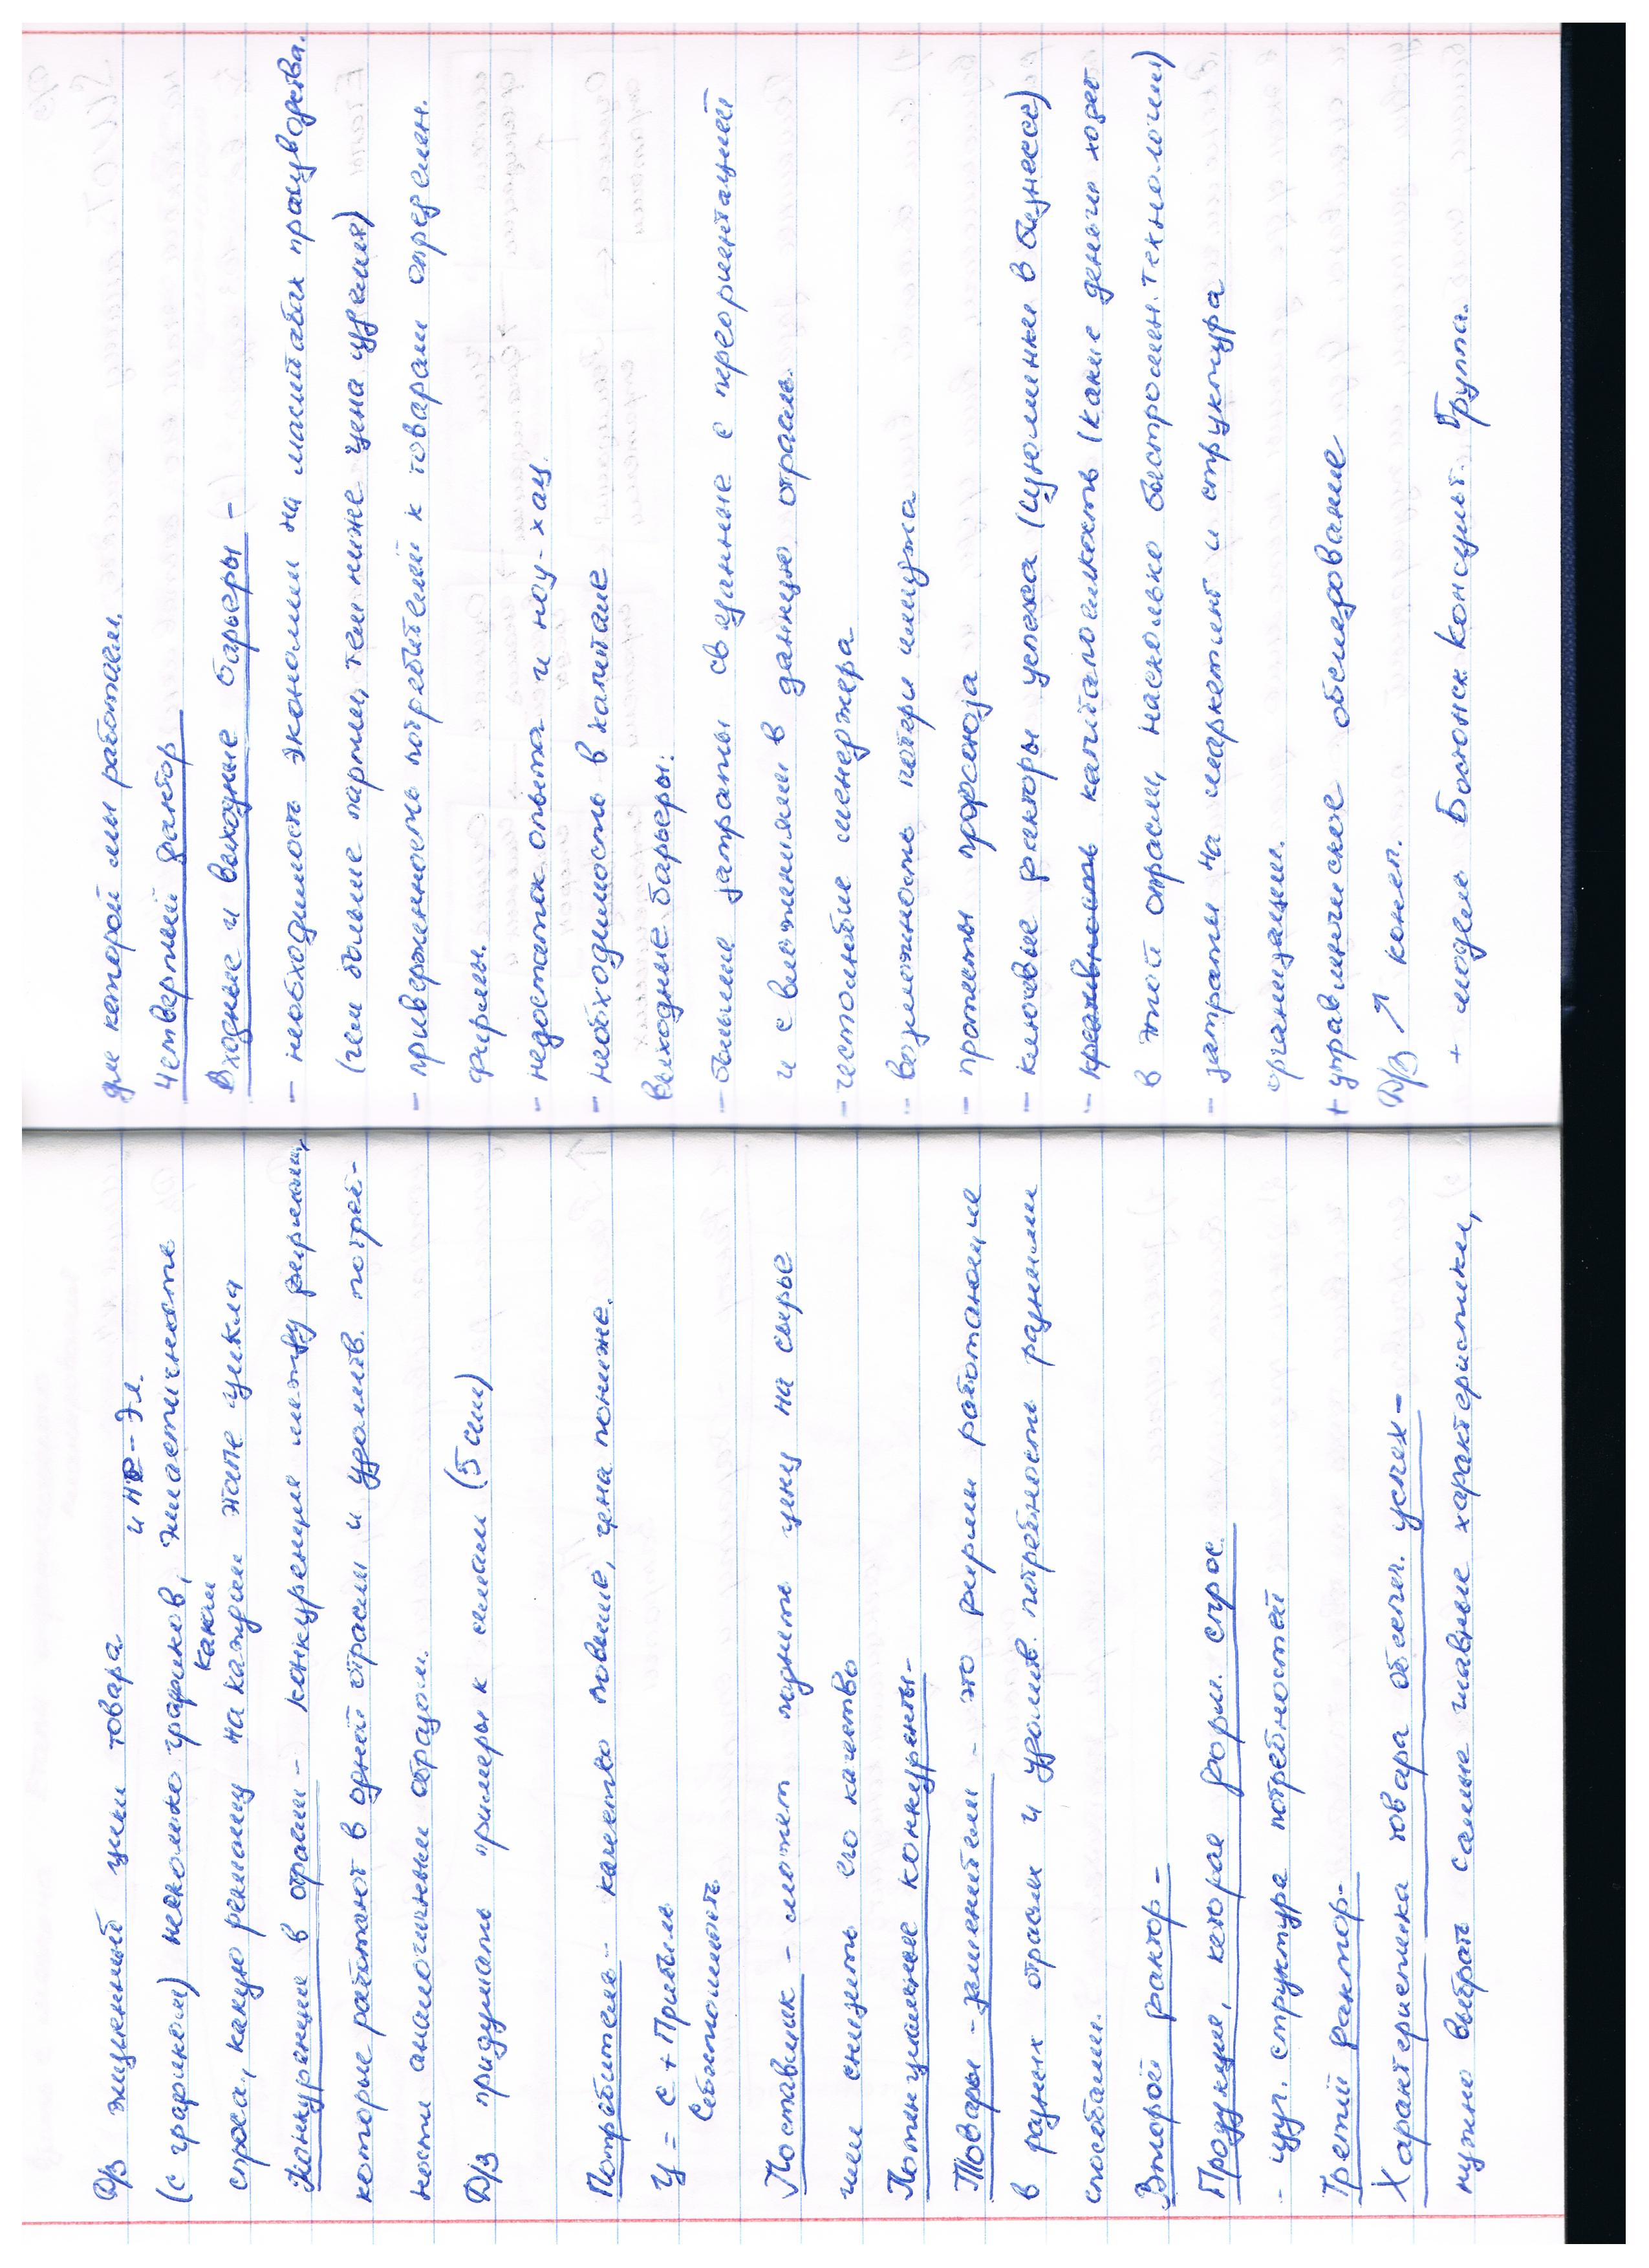 Д/З жизненный цикл товара
(с графиком) несколько графиков, эластичность и не-эл.
спроса, какую рекламу на каждом этапе цикла
какая
Конкуренция в отрасли - конкуренция между фирмами,
которые работают в одной отрасли и удовлетв. потреб-
ности аналогичным образом.
Д/З придумать примеры к силам (5 сил)
Потребитель - качество повыше, цена пониже.
Ц = С + Прибыль
Себестоимость
Поставщик - может поднять цену на сырье
или снизить его качество
Потенциальные конкуренты -
Товары - заменители - это фирмы работающие
в разных отраслях и удовлетв. потребности разными
способами.
Второй фактор -
Продукция, которая форм. спрос
- изуч. структура потребностей
Третий фактор -
Характеристика товара обеспеч. успех -
нужно выбрать самые главные характеристики,
для которой мы работаем.
Четвертый фактор
Входные и выходные барьеры -
- необходимость экономии на масштабах производства.
(чем больше партия, тем ниже цена изделия)
- приверженность потребителей к товарам определен.
фирмы.
- недостаток опыта и ноу-хау.
- необходимость в капитале
Выходные барьеры:
- большие затраты связанные с переориентацией
и с вложениями в данную отрасль.
- честолюбие менеджера
- возможность потери имиджа
- протесты профсоюза
- ключевые факторы успеха (изюминки в бизнесе)
- капиталоемкость (какие деньги ходят
в этой отрасли, насколько быстросмен. технологии)
- затраты на маркетинг и структура
организации.
+ управленческое обследование
Д/З ↗ консп.
+ модель Бостонск Консульт. Группа.